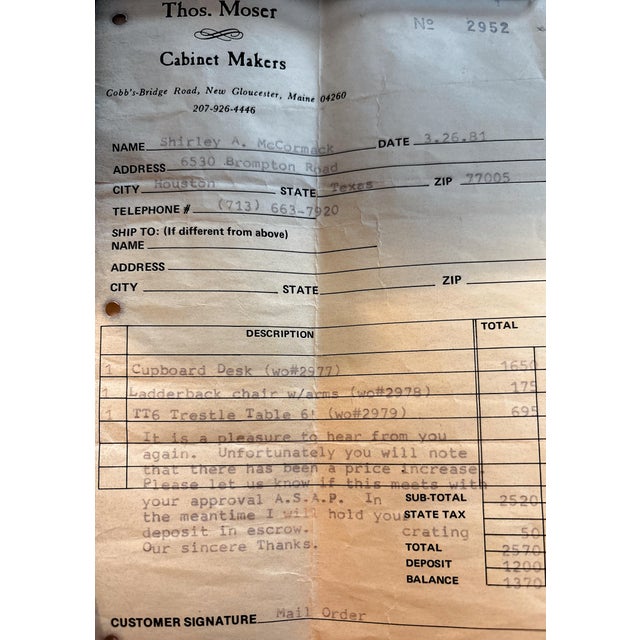 Thos. Moser
Nº 2952
Cabinet Makers
Cobb's-Bridge Road, New Gloucester, Maine 04260
207-926-4446
NAME Shirley A. McCormack DATE 3.26.81
ADDRESS 6530 Brompton Road
CITY Houston STATE Texas ZIP 77005
TELEPHONE # (713) 663-7920
SHIP TO: (If different from above)
NAME
ADDRESS
CITY STATE ZIP
DESCRIPTION TOTAL
1 Cupboard Desk (wo#2977) 1650
1 Ladderback chair w/arms (wo#2978) 175
1 TT6 Trestle Table 6' (wo#2979) 695
It is a pleasure to hear from you
again. Unfortunately you will note
that there has been a price increase.
Please let us know if this meets with
your approval A.S.A.P. In SUB-TOTAL 2520
the meantime I will hold your STATE TAX
deposit in escrow. crating 50
Our sincere Thanks. TOTAL 2570
DEPOSIT 1200
BALANCE 1370
CUSTOMER SIGNATURE Mail Order